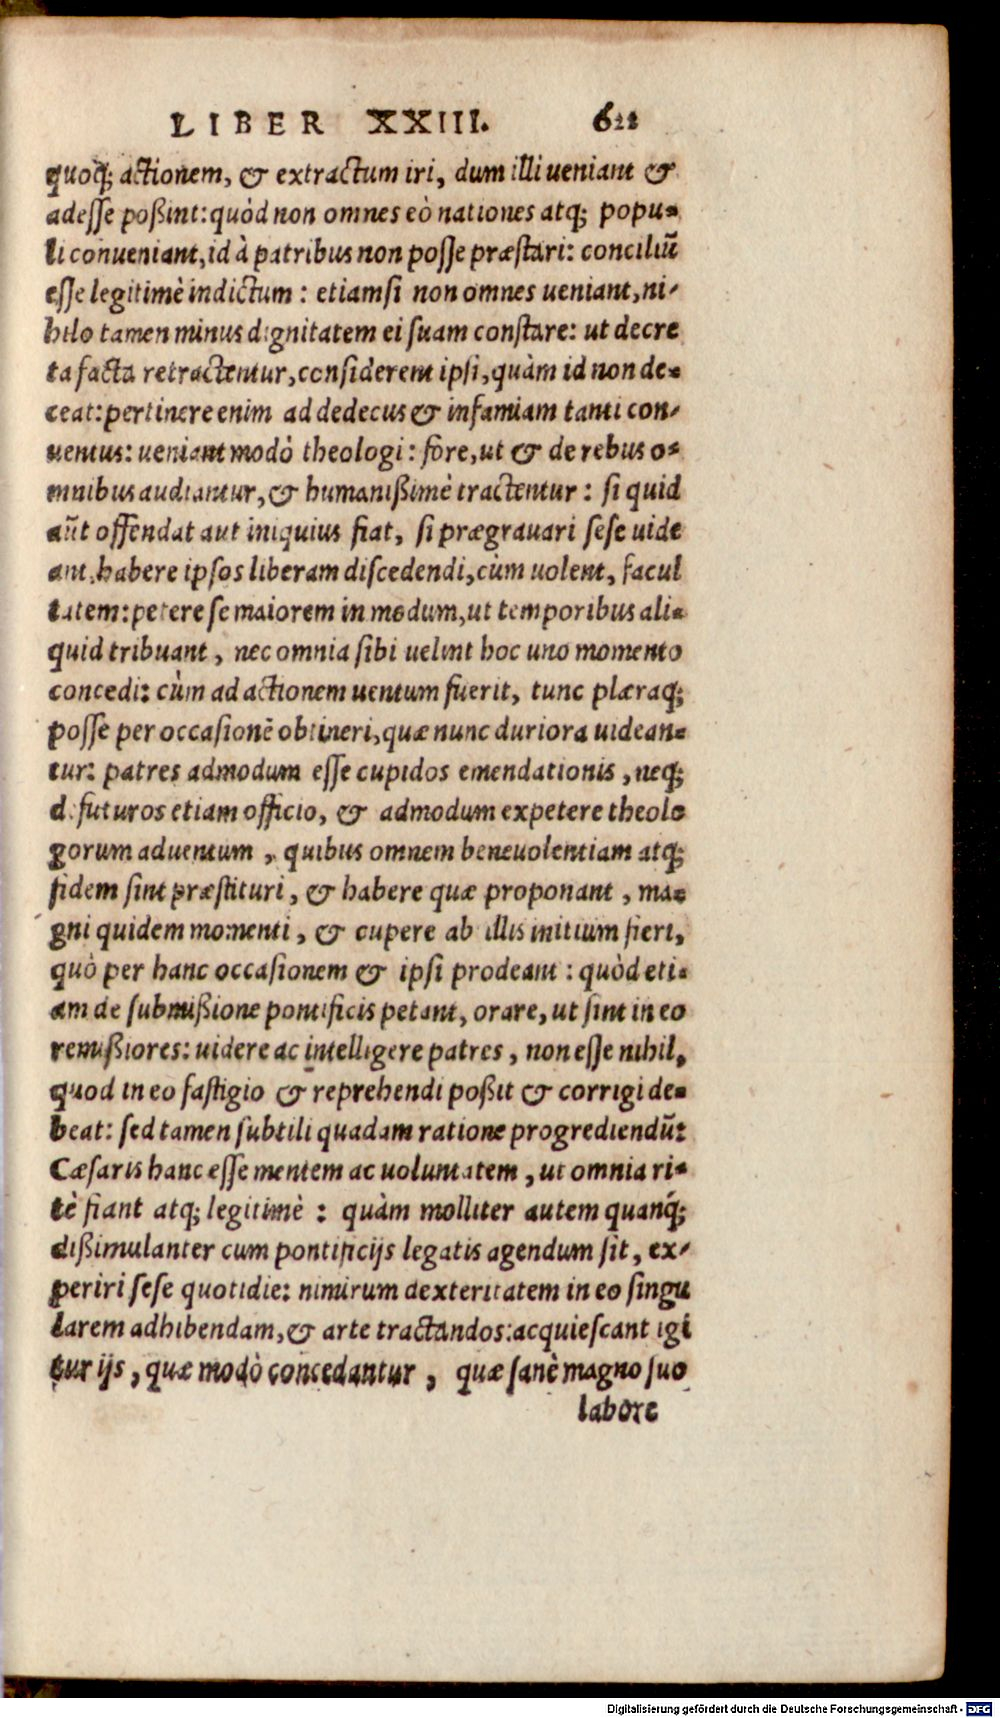 LIBER XXIII. 622
quoq; actionem, & extractum iri, dum illi ueniant &
adesse poßint: quòd non omnes eò nationes atq; popu-
li conueniant, id à patribus non posse præstari: conciliũ
esse legitimè indictum : etiamsi non omnes ueniant, ni-
hilo tamen minus dignitatem ei suam constare: ut decre
ta facta retractentur, considerent ipsi, quàm id non de-
ceat: pertinere enim ad dedecus & infamiam tanti con-
uentus: ueniant modò theologi: fore, ut & de rebus o-
mnibus audiantur, & humanißimè tractentur : si quid
aũt offendat aut iniquius fiat, si prægrauari sese uide
ant, habere ipsos liberam discedendi, cùm uolent, facul
tatem: petere se maiorem in modum, ut temporibus ali-
quid tribuant, nec omnia sibi uelint hoc uno momento
concedi: cùm ad actionem uentum fuerit, tunc plæraq;
posse per occasionẽ obtineri, quæ nunc duriora uidean-
tur: patres admodum esse cupidos emendationis, neq;
d. futuros etiam officio, & admodum expetere theolo
gorum aduentum, quibus omnem beneuolentiam atq;
fidem sint præstituri, & habere quæ proponant, ma-
gni quidem momenti, & cupere ab illis initium fieri,
quò per hanc occasionem & ipsi prodeant : quòd eti-
am de submißione pontificis petant, orare, ut sint in eo
remißiores: uidere ac intelligere patres, non esse nihil,
quod in eo fastigio & reprehendi poßit & corrigi de-
beat: sed tamen subtili quadam ratione progrediendũ:
Cæsaris hanc esse mentem ac uoluntatem, ut omnia ri-
tè fiant atq; legitimè : quàm molliter autem quanq́;
dißimulanter cum pontificijs legatis agendum sit, ex-
periri sese quotidie: nimirum dexteritatem in eo singu
larem adhibendam, & arte tractandos: acquiescant igi
tur ijs, quæ modò concedantur, quæ sanè magno suo
labore
Digitalisierung gefördert durch die Deutsche Forschungsgemeinschaft - DFG